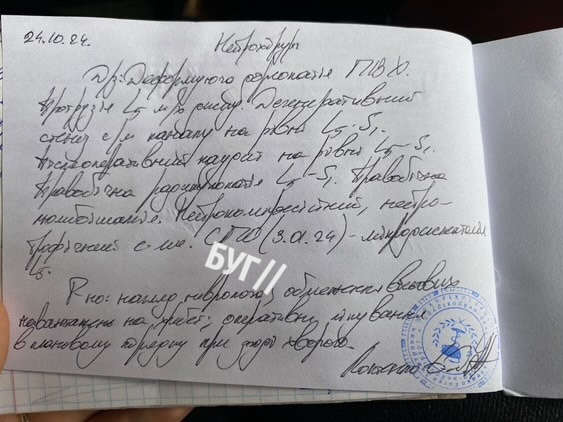 24.10.24.
Нейрохірург
Дз: Деформуюча спондилопатія ПВХ.
Протрузія L5 м/х диску. Дегенеративний
стеноз с/м каналу на рівні L5-S1.
Післяопераційний на рівні L5-S1.
Правобічна радикулопатія L5-S1. Правобічна
люмбоішіалгія. Нейрокомпресійний, нейро-
трофічний с-ми. СПО (3.01.24) - мікродискектомія
L5.
БУГ //
R-но: нагляд невролога, обмеження
навантажень на хребет; оперативне лікування
в плановому порядку при згоді хворого.